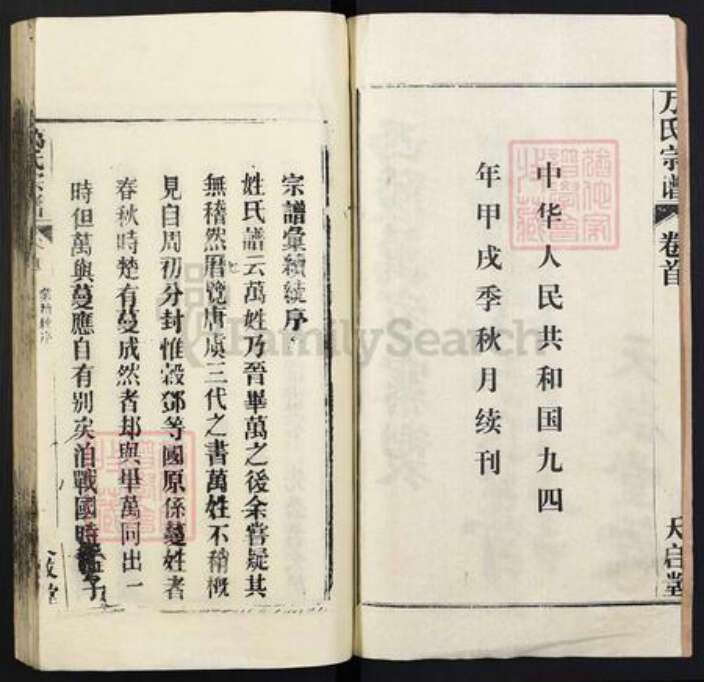 万氏宗谱
卷首
中华人民共和国九四
年甲戌季秋月续刊
宗譜彙續統序
姓氏譜云萬姓乃晉畢萬之後余嘗疑其
無稽然曆覽唐虞三代之書萬姓不稍概
見自周初分封惟穀鄧等國原係蔓姓者
春秋時楚有蔓成然者邦與畢萬同出一
時但萬與蔓應自有别矣洎戰國時
FamilySearch